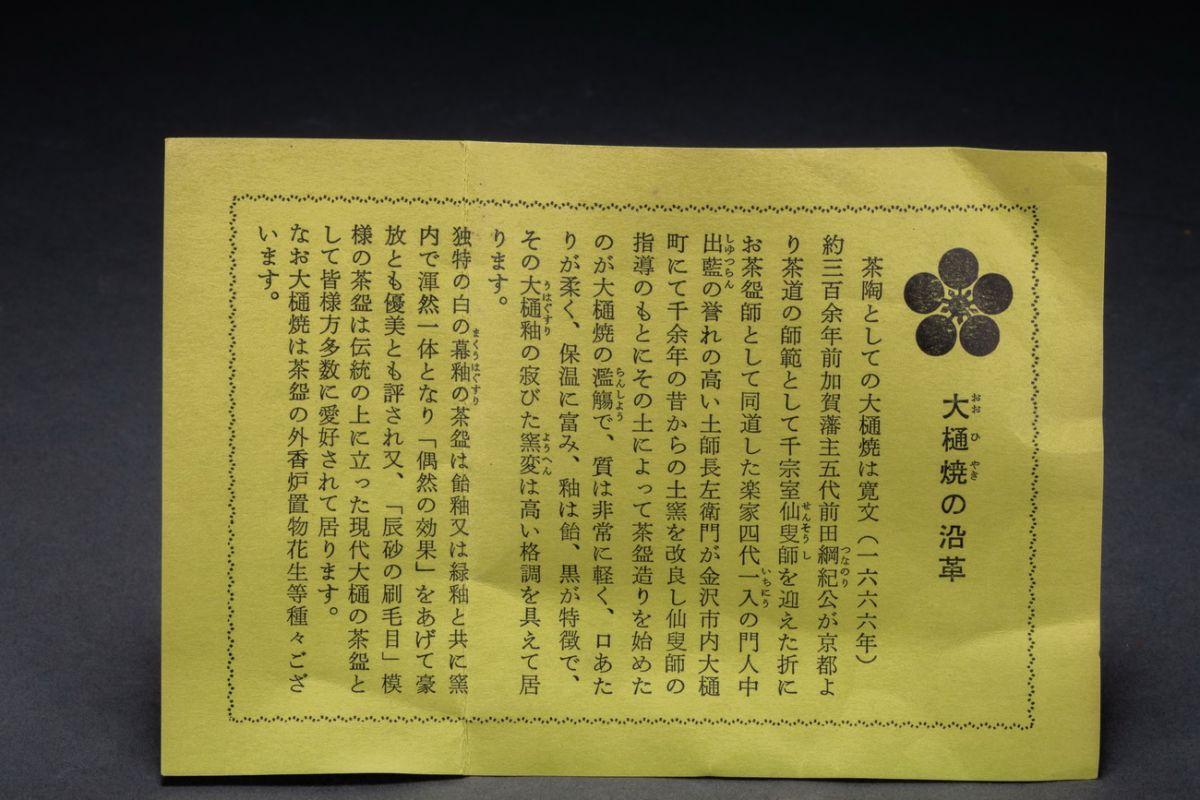 大樋焼の沿革
茶陶としての大樋焼は寛文（一六六六年）
約三百余年前加賀藩主五代前田綱紀公が京都よ
り茶道の師範として千宗室仙叟師を迎えた折に
お茶盌師として同道した楽家四代一入の門人中
出藍の誉れの高い土師長左衛門が金沢市内大樋
町にて千余年の昔からの土窯を改良し仙叟師の
指導のもとにその土によって茶盌造りを始めた
のが大樋焼の濫觴で、質は非常に軽く、口あた
りが柔く、保温に富み、釉は飴、黒が特徴で、
その大樋釉の寂びた窯変は高い格調を具えて居
ります。
独特の白の幕釉の茶盌は飴釉又は緑釉と共に窯
内で渾然一体となり「偶然の効果」をあげて豪
放とも優美とも評され又、「辰砂の刷毛目」模
様の茶盌は伝統の上に立った現代大樋の茶盌と
して皆様方多数に愛好されて居ります。
なお大樋焼は茶盌の外香炉置物花生等種々ござ
います。